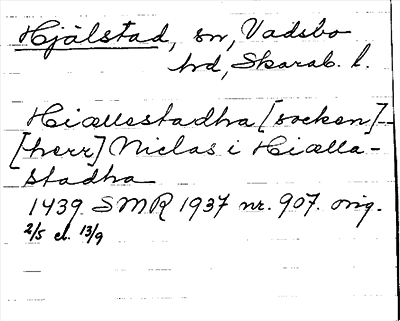 Hjälstad, sn, Vadsbo
hd, Skarab. l.
Hiællestadha [socken]-
[herr] Niclas i Hiælla-
stadha
1439 SMR 1937 nr. 907. orig.
2/5 el. 13/9